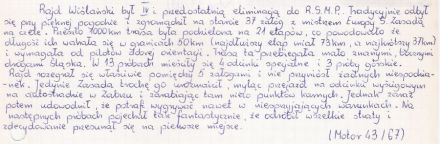 Rajd Wiślański był IV i przedostatnią eliminacją do R.S.M.P. Tradycyjnie odbył
się przy pięknej pogodzie i zgromadził na starcie 37 załóg z mistrzem Europy S. Zasadą
na czele. Przeszło 1000km trasa była podzielona na 21 etapów, co powodowało że
długość ich wahała się w granicach 50km (najdłuższy etap miał 73km, a najkrótszy 37km)
i wymagała od pilotów dobrej orientacji. Trasa ta przebiegała mało znanymi, bocznymi
drogami Śląska. W 13 próbach mieściły się 4 odcinki specjalne i 3 próby górskie.
Rajd rozegrał się właściwie pomiędzy 5 załogami i nie przyniósł żadnych niespodzia-
-nek. Jedynie Zasada trochę go urozmaicił, myląc przejazd na odcinku wyścigowym
na autostradzie w Zabrzu i zarabiając tam wiele punktów karnych. Jednak zaraz
potem udowodnił, że potrafi wygrywać nawet w niesprzyjających warunkach. Na
następnych próbach pojechał tak fantastycznie, że odrobił wszelkie straty i
zdecydowanie przesunął się na pierwsze miejsce.
(Motor 43/67)